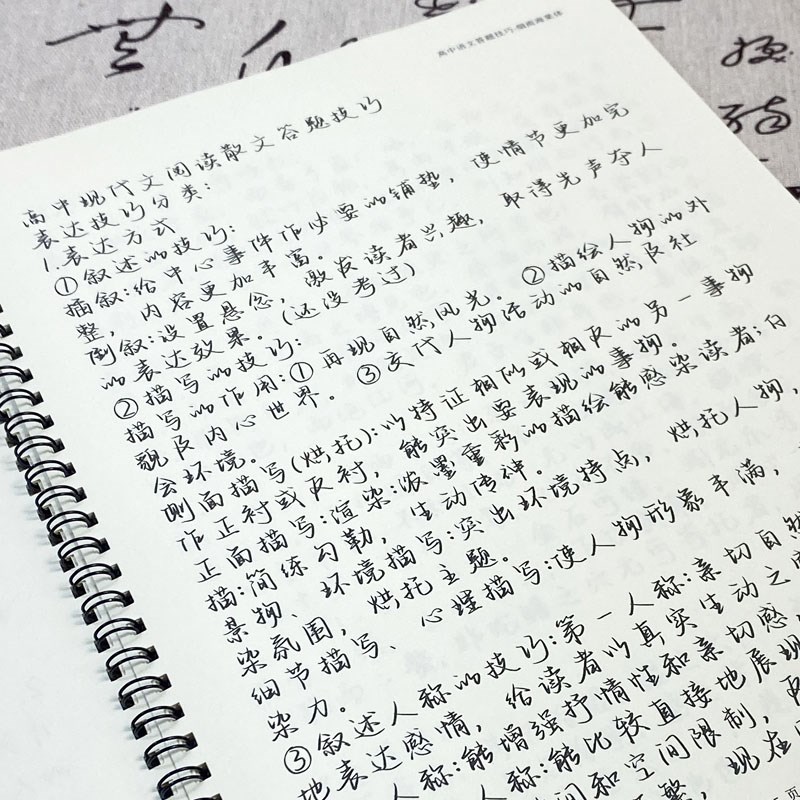 高中语文答题技巧
高中现代文阅读散文答题技巧
表达技巧分类:
1.表达方式
①叙述的技巧:
插叙:给中心事件作必要的铺垫，使情节更加完
整，内容更加丰富。
倒叙:设置悬念，激发读者兴趣，取得先声夺人
的表达效果。(还没考过)
②描写的技巧:
描写的作用:①再现自然风光。②描绘人物的外
貌及内心世界。③交代人物活动的自然及社
会环境。
侧面描写(烘托):以特证相似或相反的另一事物
作正衬或反衬，能突出要表现的事物。
正面描写:渲染:泼墨重彩的描绘能感染读者;白
描:简练勾勒，生动传神。
景物、环境描写:突出环境特点，烘托人物，
染氛围，烘托主题。
细节描写、心理描写:使人物形象丰满，
染力。
③叙述人称的技巧:第一人称:亲切自然
地表达感情，给读者以真实生动之
人称:能增强抒情性和亲切感
人称:能比较直接地展现
间和空间限制，
现在
页